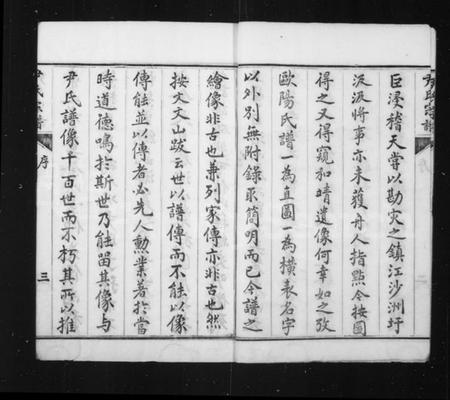 巨浸稽天嘗以勘灾之鎮江沙洲圩
汲汲將事亦未獲舟人指點今按圖
得之又得窺和靖遺像何幸如之攷
歐陽氏譜一為直圖一為橫表名字
以外別無附錄取簡明而已今譜之
繪像非古也兼列家傳亦非古也然
按文文山跋云世以譜傳而不能以像
傳能並以傳者必先人勳業著於當
時道德鳴於斯世乃能留其像与
尹氏譜像千百世而不朽其所以推
序
三